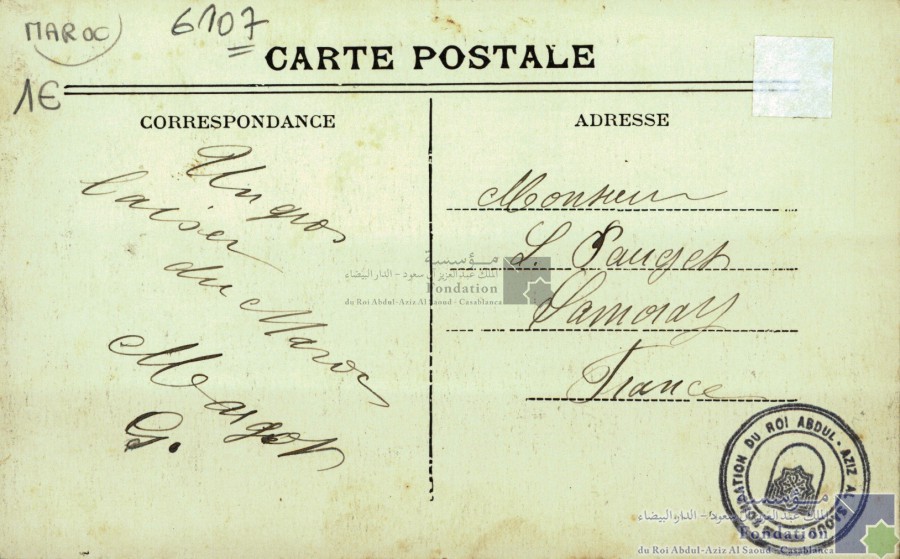 MAROC
6107
1€
CARTE POSTALE
CORRESPONDANCE
Un gros
baiser
du Maroc
Margot
G.
ADRESSE
Monsieur
Samoëns
France
مؤسسة
الملك عبد العزيز آل سعود – الدار البيضاء
Fondation
du Roi Abdul-Aziz Al Saoud - Casablanca
FONDATION DU ROI ABDUL-AZIZ AL SAOUD
مؤسسة
الملك عبد العزيز آل سعود – الدار البيضاء
Fondation
du Roi Abdul-Aziz Al Saoud - Casablanca